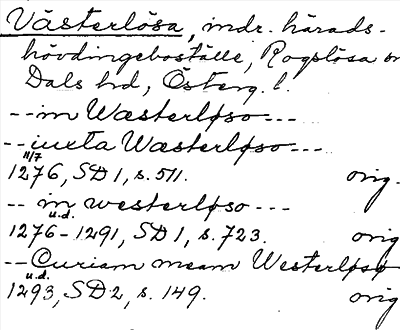 Västerlösa, indr. härads-
hövdingeboställe, Rogslösa sn
Dals hd, Österg. l.
--in Wæsterløso---
--iuxta Wæsterløso---
11/7
1276, SD 1, s. 511. orig.
-- in westerløso ---
u.d.
1276-1291, SD 1, s. 723. orig
--Curiam meam Westerløsø
u.d.
1293, SD 2, s. 149. orig